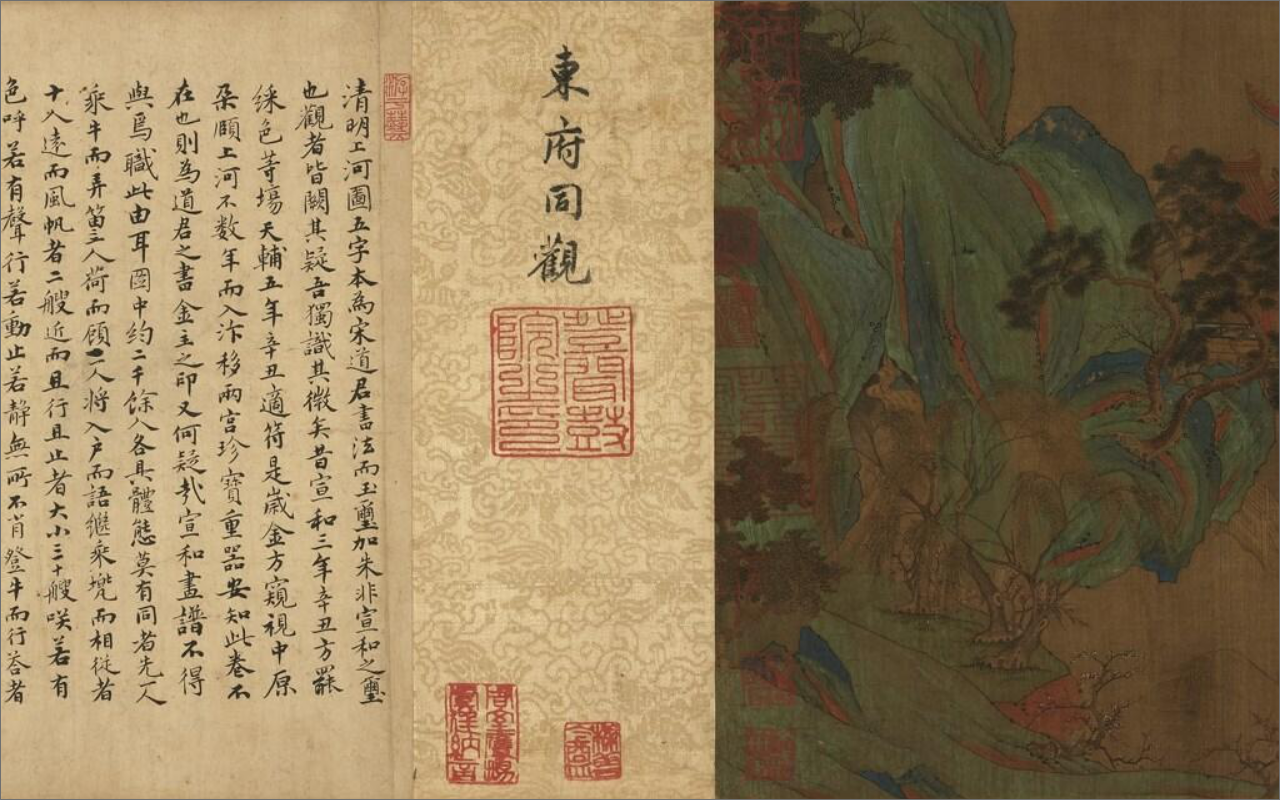 東府同觀
清明上河圖五字本為宋道君書法而玉璽加朱非宣和之璽
也觀者皆闕其疑吾獨識其微矣昔宣和三年辛丑方罷
綵色等塲天輔五年辛丑適符是歲金方窺視中原
朶頤上河不数年而入汴移兩宮珍寶重器安知此卷不
在也則為道君之書金主之印又何疑哉宣和畫譜不得
與焉職此由耳圖中約二千餘人各具體態莫有同者先一人
乘牛而弄笛三人荷而顧人將入戶而語継乘而相従者
十人遠而風帆者二艘近而且行且止者大小三十艘咲若有
色呼若有聲行若動止若靜無所不肖登牛而行荅者